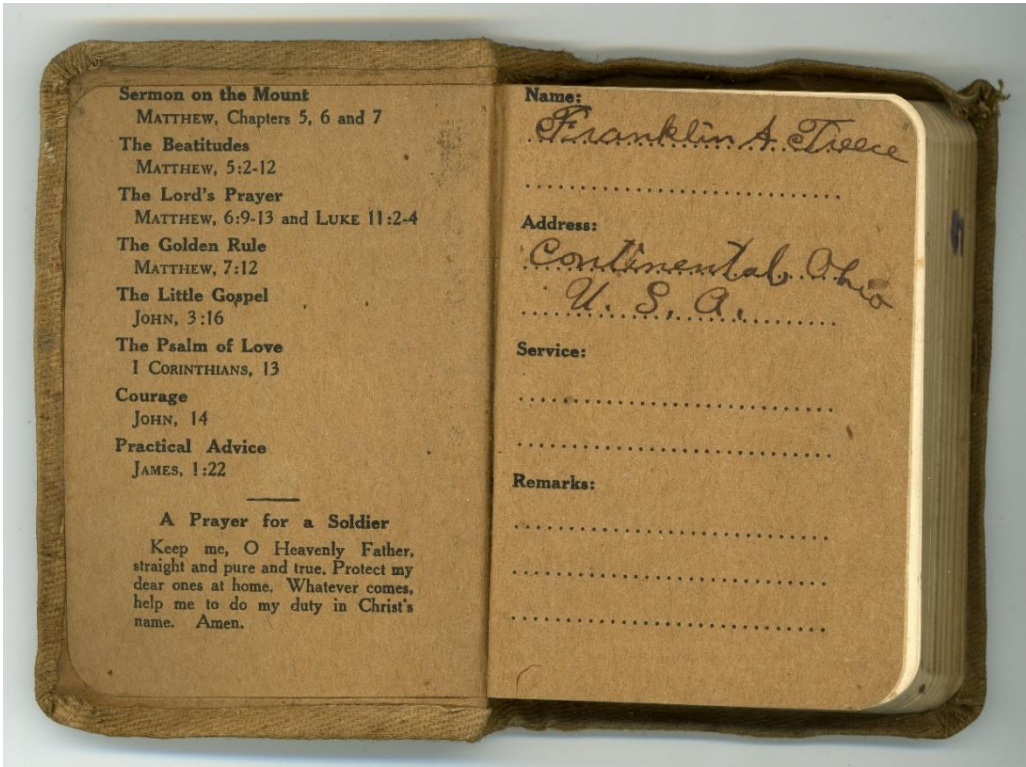 Sermon on the Mount
MATTHEW, Chapters 5, 6 and 7
The Beatitudes
MATTHEW, 5:2-12
The Lord's Prayer
MATTHEW, 6:9-13 and LUKE 11:2-4
The Golden Rule
MATTHEW, 7:12
The Little Gospel
JOHN, 3:16
The Psalm of Love
I CORINTHIANS, 13
Courage
JOHN, 14
Practical Advice
JAMES, 1:22
A Prayer for a Soldier
Keep me, O Heavenly Father,
straight and pure and true. Protect my
dear ones at home. Whatever comes,
help me to do my duty in Christ's
name. Amen.
Name:
Franklin A. Treece
Address:
Continental, Ohio
U. S. A.
Service:
Remarks: